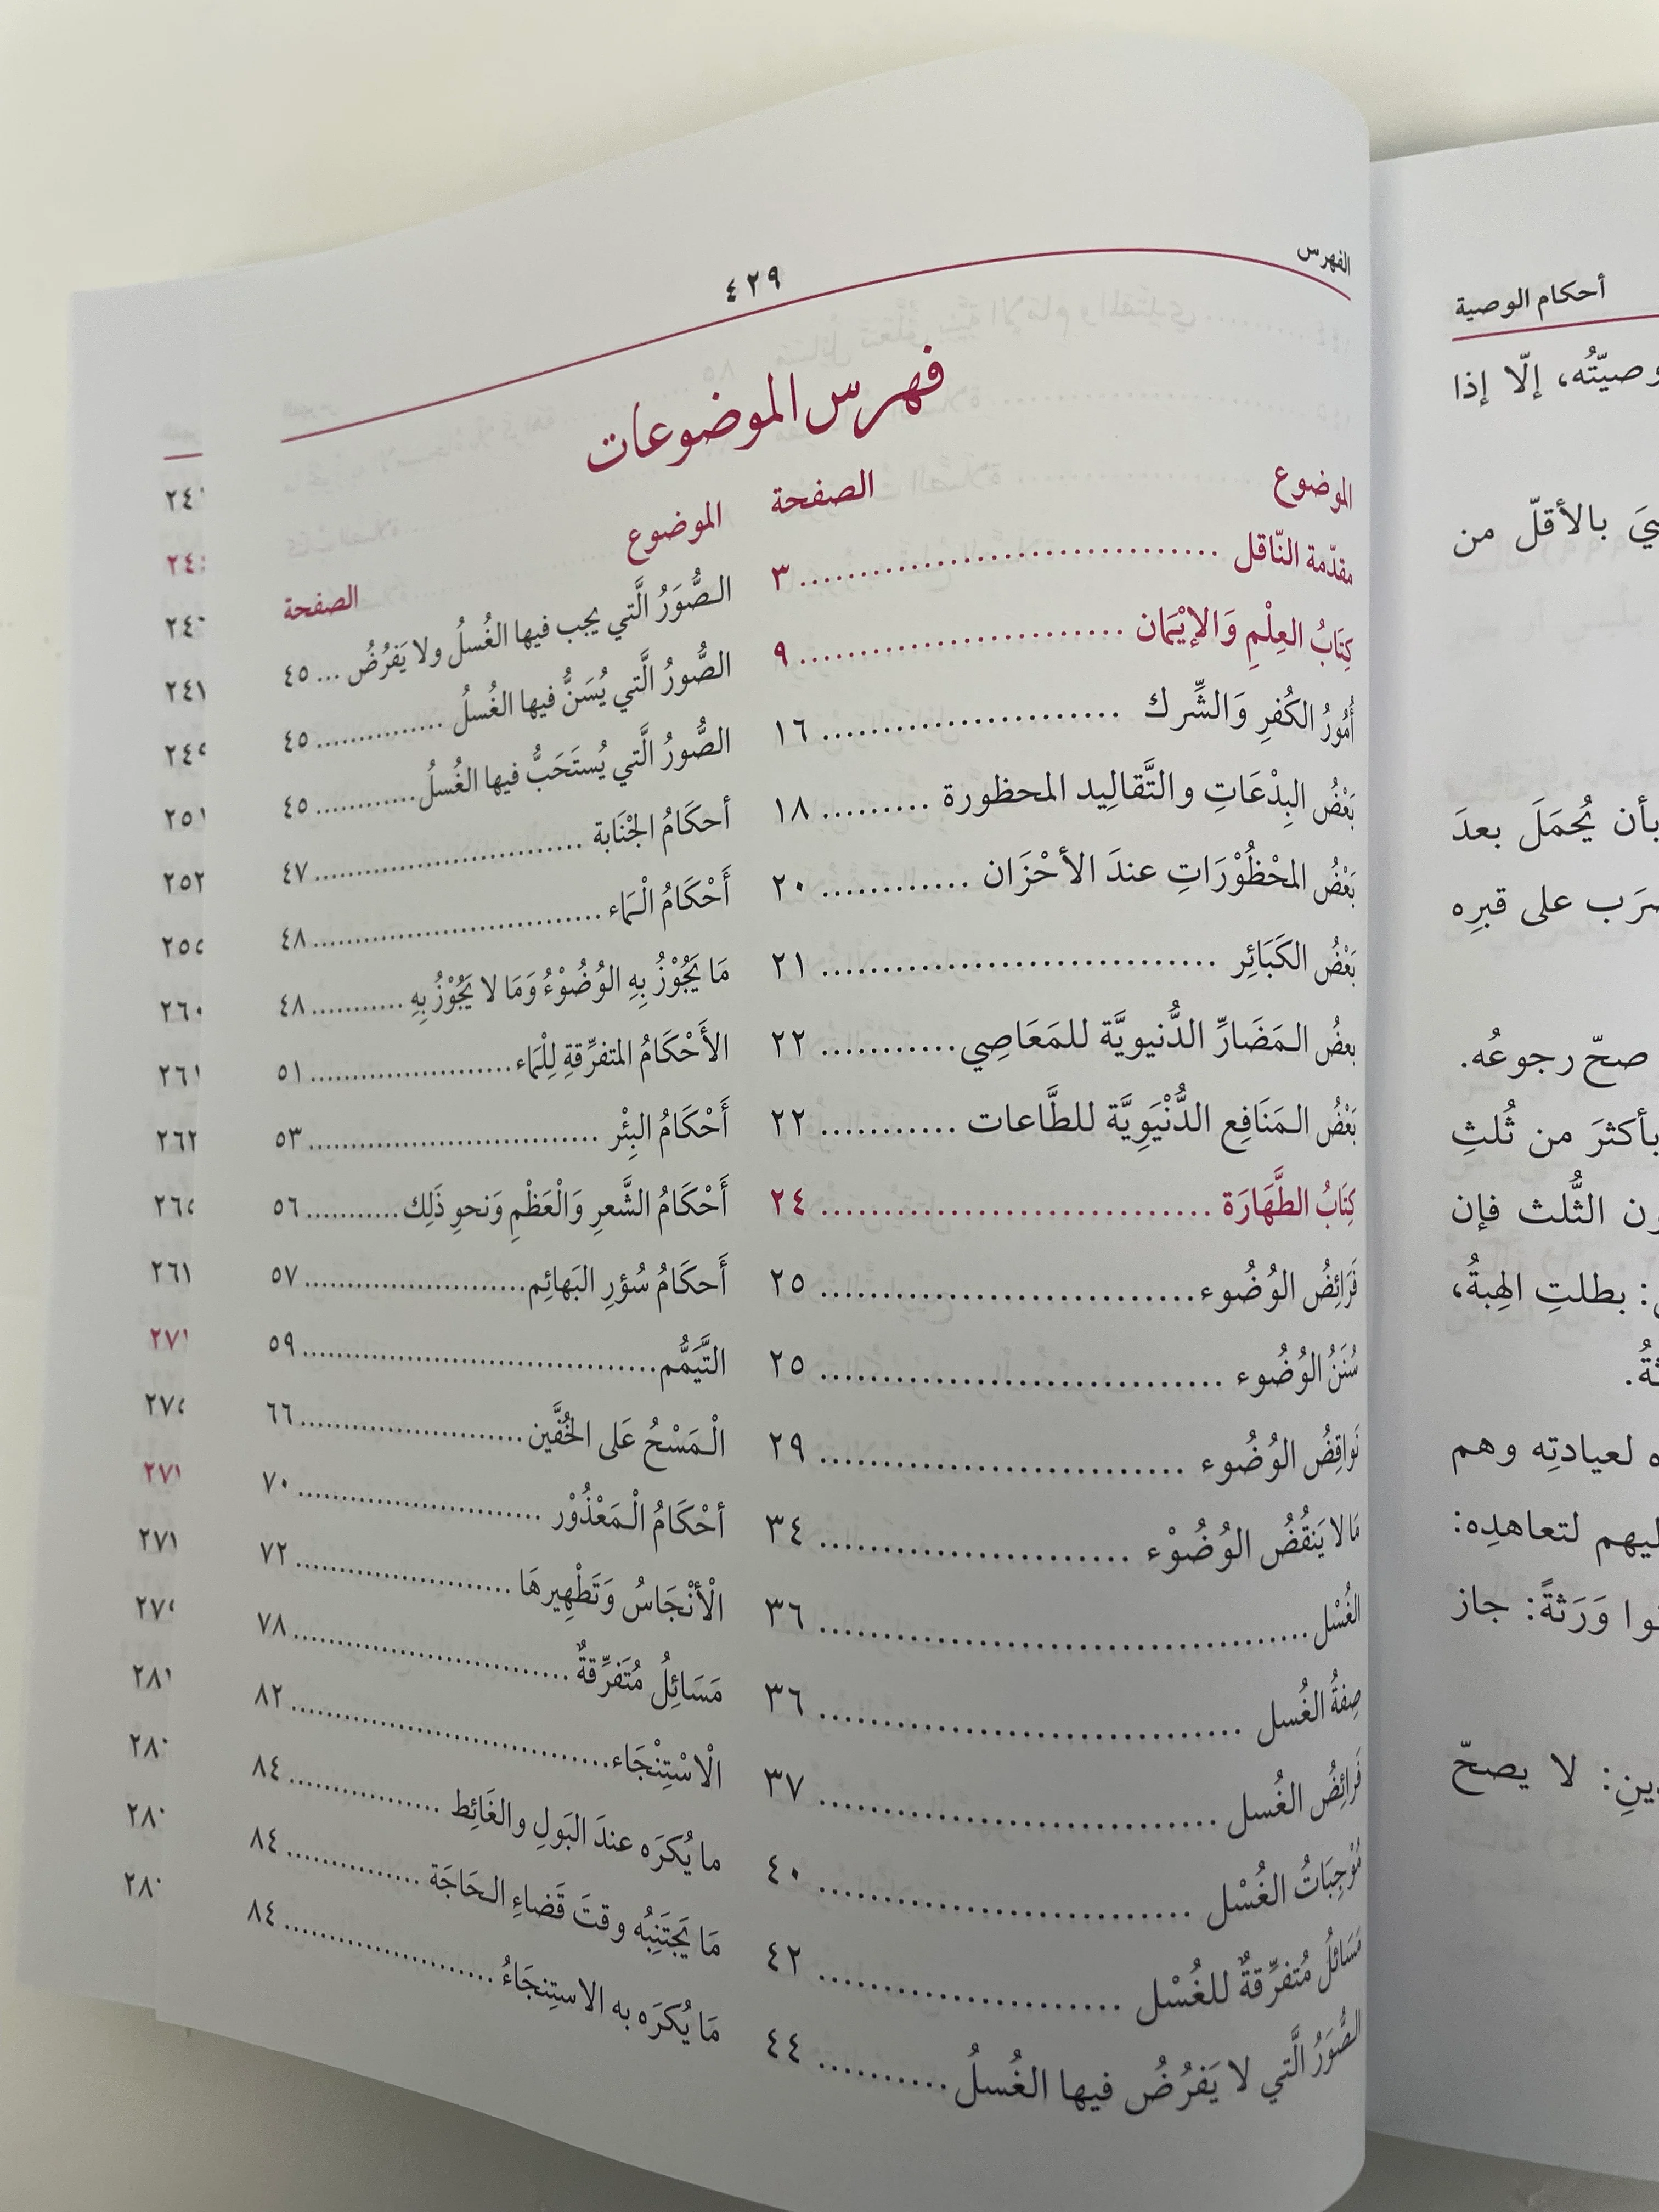 الفهرس
٤٢٩
فهرس الموضوعات
الموضوع الصفحة
مقدّمة النّاقل ........ ٣
كِتَابُ العِلْمِ وَالإيْمَان ........ ٩
أُمُورُ الكُفرِ وَالشِّرك ........ ١٦
بَعْضُ البِدْعَاتِ والتَّقالِيد المحظورة ........ ١٨
بَعْضُ المحْظُوْرَاتِ عندَ الأحْزَان ........ ٢٠
بَعْضُ الكَبَائِر ........ ٢١
بعضُ الـمَضَارِّ الدُّنيويَّة للمَعَاصِي ........ ٢٢
بَعْضُ الـمَنَافِع الدُّنْيَوِيَّة للطَّاعات ........ ٢٢
كِتَابُ الطَّهَارَة ........ ٢٤
فَرَائِضُ الوُضُوء ........ ٢٥
سُنَنُ الوُضُوء ........ ٢٥
نَواقِضُ الوُضُوء ........ ٢٩
مَا لا يَنقُضُ الوُضُوْء ........ ٣٤
الغُسْل ........ ٣٦
صِفةُ الغُسل ........ ٣٦
فَرائِضُ الغُسل ........ ٣٧
مُوْجِبَاتُ الغُسْل ........ ٤٠
مَسَائلُ مُتفرِّقةٌ للغُسْل ........ ٤٢
الصُّوَرُ الَّتي لا يَفرُضُ فيها الغُسلُ ........ ٤٤
الموضوع الصفحة
الصُّوَرُ الَّتي يجب فيها الغُسلُ ولا يَفرُضُ ... ٤٥
الصُّورُ الَّتي يُسَنُّ فيها الغُسلُ ........ ٤٥
الصُّورُ الَّتي يُستَحَبُّ فيها الغُسلُ ........ ٤٥
أحكَامُ الجْنَابة ........ ٤٧
أَحْكَامُ الْـمَاء ........ ٤٨
مَا يَجُوْزُ بِهِ الوُضُوْءُ وَمَا لا يَجُوْزُ بِهِ ........ ٤٨
الأَحْكَامُ المتفرِّقةِ لِلْمَاء ........ ٥١
أَحْكَامُ البِئْر ........ ٥٣
أَحْكَامُ الشَّعرِ وَالْعَظْمِ وَنحوِ ذَلِك ........ ٥٦
أَحكَامُ سُؤرِ البَهائِم ........ ٥٧
التَّيَمُّم ........ ٥٩
الْـمَسْحُ عَلى الخُفَّين ........ ٦٦
أحْكَامُ الْـمَعْذُوْر ........ ٧٠
الْأنْجَاسُ وَتَطْهِيرهَا ........ ٧٢
مَسَائِلُ مُتَفرِّقةٌ ........ ٧٨
الْاسْتِنْجَاء ........ ٨٢
ما يُكرَه عندَ البَولِ والغَائِط ........ ٨٤
مَا يَجتَنِبُه وقتَ قَضاءِ الـحَاجَة ........ ٨٤
مَا يُكرَه به الاستِنجَاءُ ........ ٨٤
٢٥٢
٢٦٠
٢٦٢
أحكام الوصية
وصيّتُه، إلّا إذا
بالأقلّ من
بأن يُحمَلَ بعدَ
على قبرِه
صحّ رجوعُه.
بأكثرَ من ثُلثِ
الثُّلث فإن
: بطلتِ الهِبةُ،
لعيادتِه وهم
لتعاهدِه:
وَرَثةً: جاز
لا يصحّ